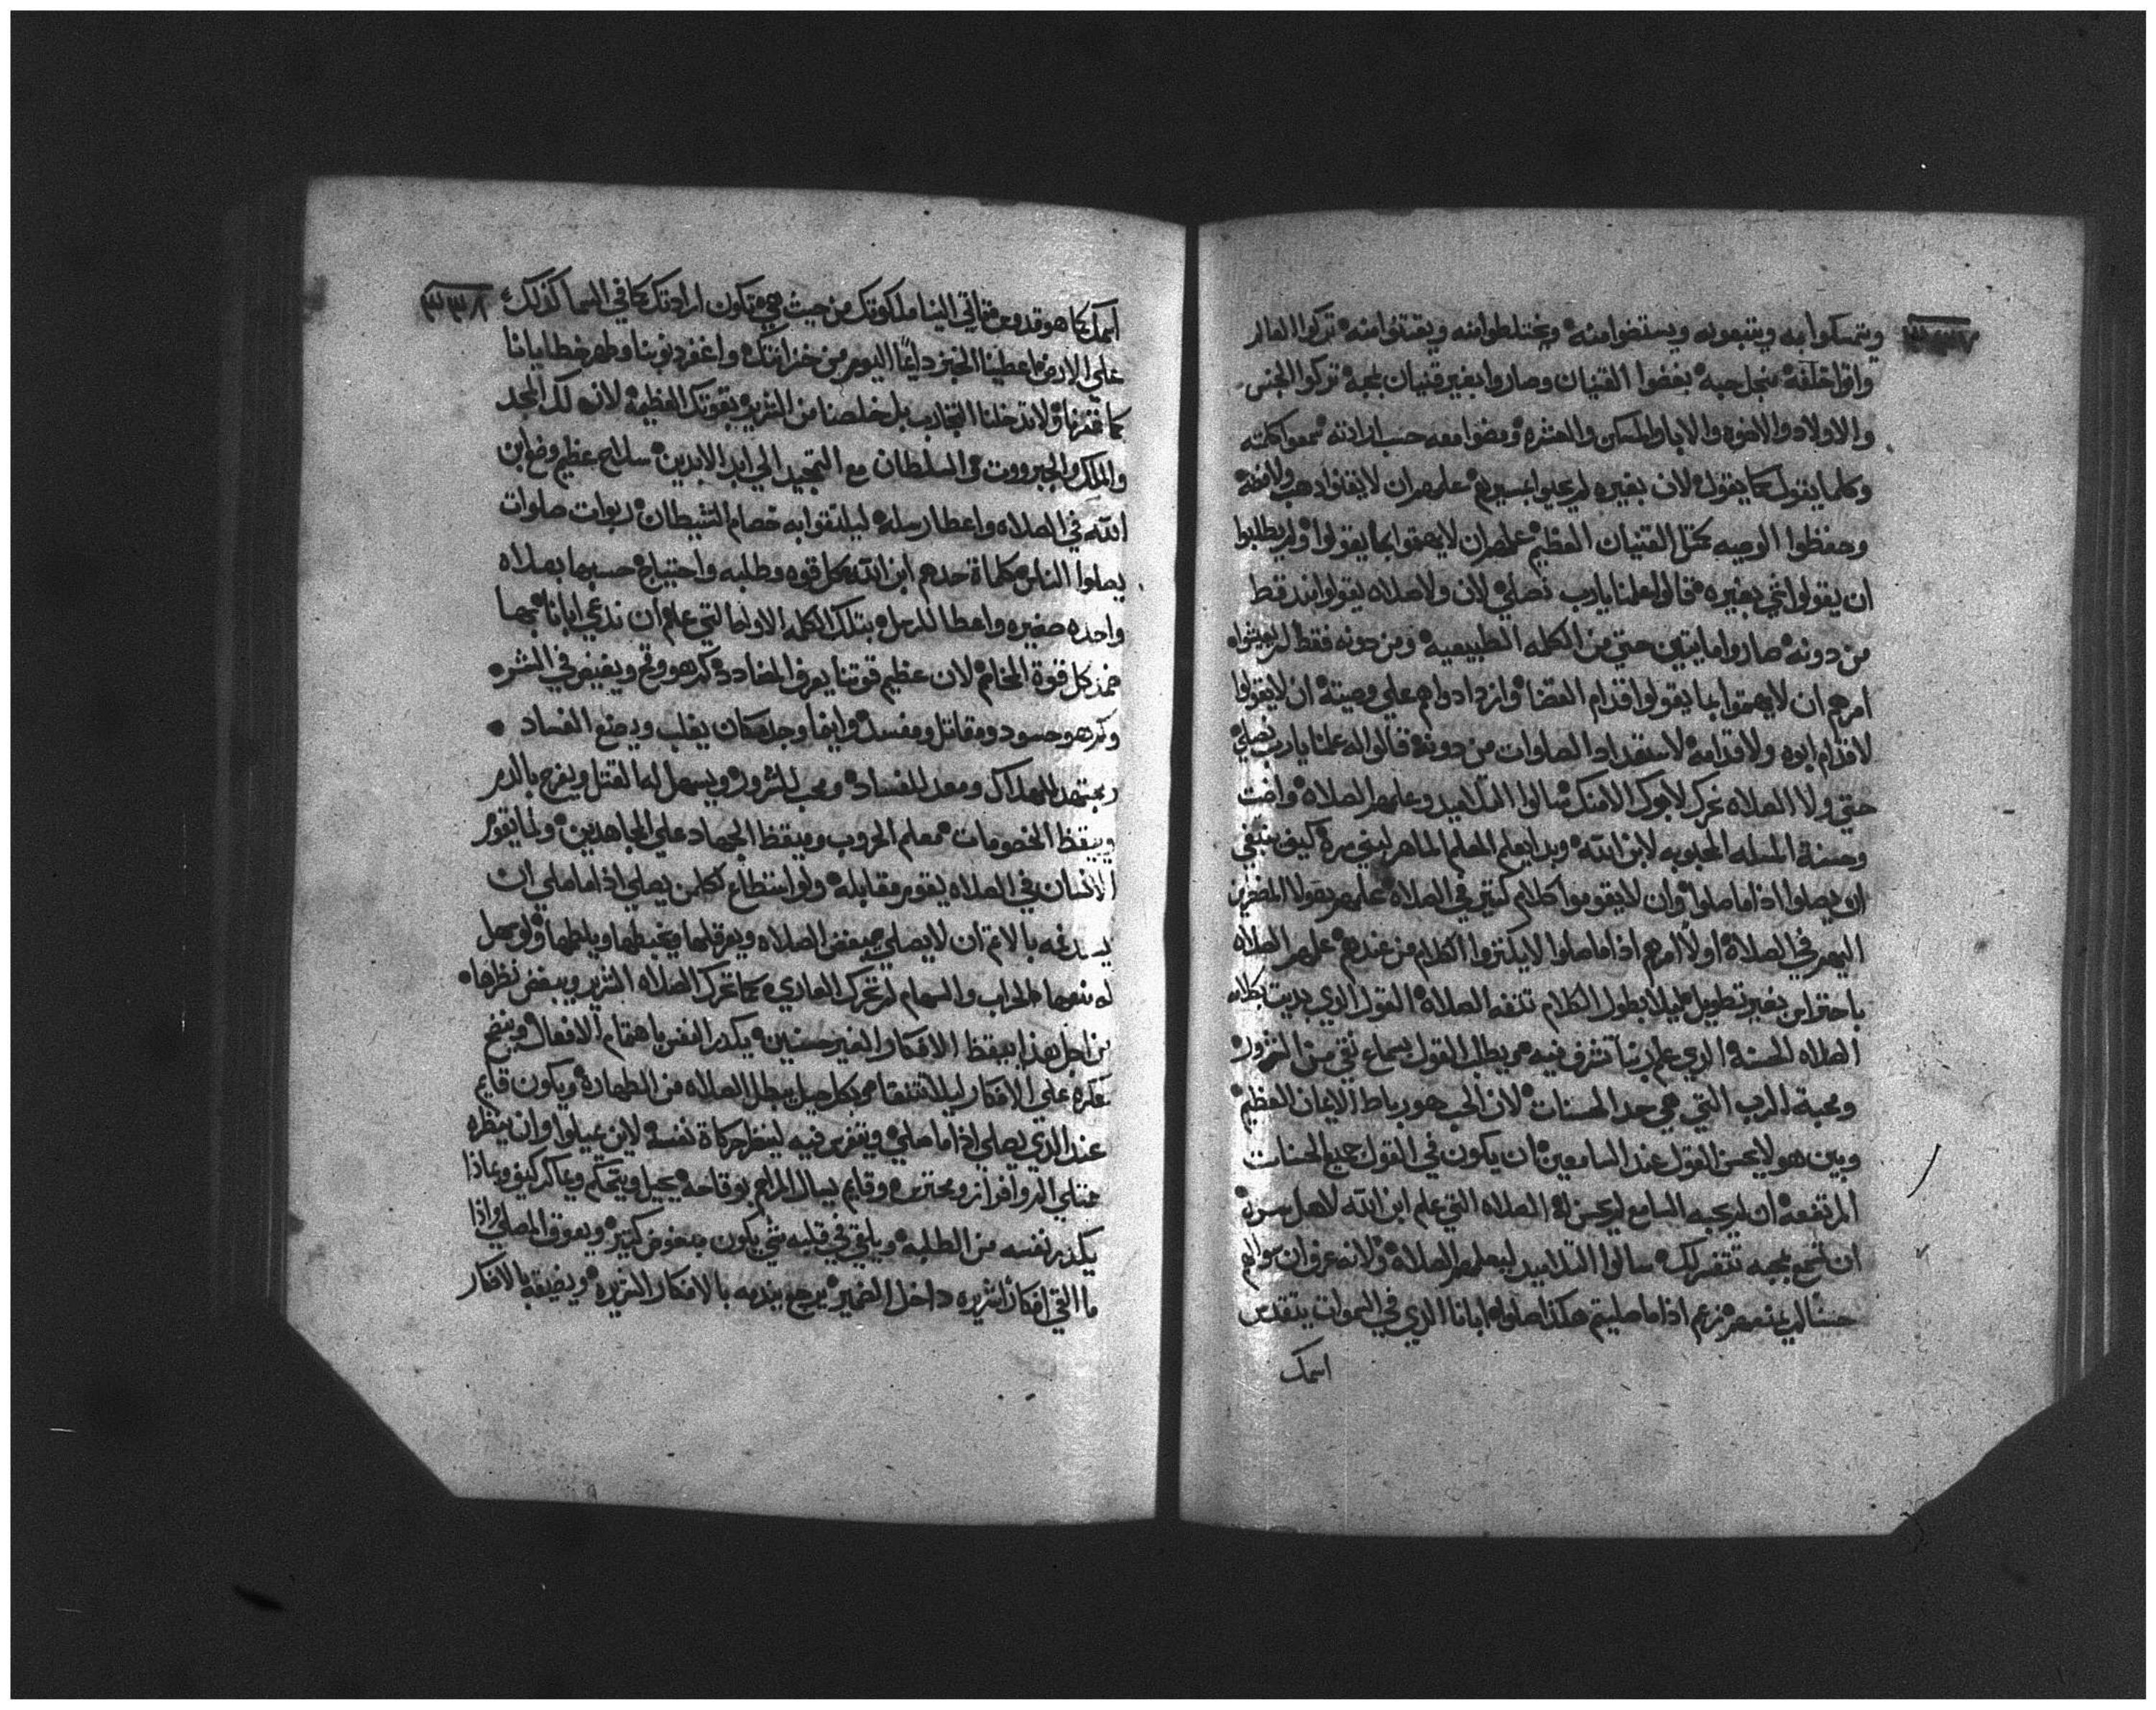 ٣٣٧
ويتمسكوا به ويتبعونه ويستضوا منه ويختلطوا منه ويقتنوا منه تركوا العالم
واتوا خلفه منجل حبه بغضوا القنيان وصاروا بغير قنيان بمحبة تركوا الجنس
والاولاد والاخوه والابا والمسكن والعشره ومضوا معه حسب ارادته سمعوا كلمته
وكلما يقول كما يقول لان بغيره لم علمهم ان لا يقتنوا دهب ولا فضه
وحفظوا الوصيه كمتل القنيان العظيم علمهم ان لا يهتموا بما يقولوا ولم يطلبوا
ان يقولوا شي بغيره قالوا علمنا يارب نصلي لان ولا صلاه يقولوا قط
من دونه صاروا مايتين حتي من الكلمه الطبيعيه ومن دونه فقط لم
امرهم ان لا يهتموا بما يقولوا قدام القضا وازدادوا هم علي وصيته ان لا يقولوا
لا قدام ابوه ولا قدامه لاستعداد الصلوات من دونه قالوا له علمنا يارب نصلي
حتي ولا الصلاه لابوك الا منك سالوا التلاميد وعلمهم الصلاه
وحسنة المسله المحبوبه لابن الله وبدا يعلم المعلم الماهر كيف ينبغي
ان يصلوا اذا ما صلوا وان لا يقوموا كلام كتير في الصلاه علمهم
اليهم في الصلاه اولاً امرهم اذا ما صلوا لا يكتروا الكلام من عندهم علمهم الصلاه
باحتراس بغير تطويل ليلا بطول الكلام الصلاه القول الدي بكلامه
الصلاه الحسنه الدي علم ربنا فيه القول بسماع نقي من الشرور
ومحبة الرب التي هي حد الحسنات لان الحب هو رباط الايمان العظيم
وبين هو لا يحسن القول عند السامعين ان يكون في القول جميع الحسنات
المرتفعه ان لم السامع لم يحسن له الصلاه التي علم ابن الله لاهل سره
ان لك سالوا التلاميد ليعلمهم الصلاه ولانه عرف ان سوالهم
زعم اذا ما صليتم هكذا صلوا ابانا الدي في السموات يتقدس
اسمك
٣٣٨
اسمك كما هو قدوس فتاتي الينا ملكوتك من حيث هي تكون ارادتك كما في السما كذلك
علي الارض اعطينا الخبز دايمًا اليوم من خزانتك واغفر دنوبنا وطهر خطايانا
كما غفرنا ولا تدخلنا التجارب بل خلصنا من الشرير بقوتك العظيمه لان لك المجد
والملك والجبرووت والسلطان مع التمجيد الي ابد الابدين سلاح عظيم وضع ابن
الله في الصلاه واعطا رسله ليلتقوا به خصام الشيطان ربوات صلوات
يصلوا الناس كلماة حدهم ابن الله بكل قوه وطلبه واحتياج حسبها بصلاه
واحده صغيره واعطا للرسل بتلك الكلمه الاولي التي علم ان ندعي ابانا
كل قوة الخاتم لان عظيم قوتنا يعرف المضادد كم هو وقح ويفيض في الشر
وكم هو حسود ومقاتل ومفسد وايضاً وجد مكان يقلب ويصنع الفساد
ويجتهد للهلاك ومعد للفساد ومحب للشرور ويسهل له القتل ويفرح بالدم
وييقظ الخصومات معلم الحروب ومتيقظ الجهاد علي المجاهدين ولما يقوم
الانسان في الصلاه يقوم مقابله ولو استطاع لكلمن يصلي اذا ما صلي ان
بالاتم ان لا يصلي يبغض الصلاه ويعرقلها ويخبطها ويلطمها ولو سهل
له منعها بالحراب والسهام لم تحرك العادي كما تحرك الصلاه الشرير ويبغض نظرها
من اجل هدا ييقظ الافكار الغير حسنين يكدر النفس باهتمام الافعال
علي الافكار ليلا بكل حيل يبطل الصلاه من الطهاره ويكون قايم
عند الدي يصلي اذا ما صلي ويتفرس فيه لينظر حركاة نفسه لاين يميلوا وان ينظره
ممتلي افراز ومحترس وقايم يسال المراحم بوقاحه يحيل ويتحكم كيف وبماذا
يكدر نفسه من الطلبه ويلقي في قلبه شي يكون مبغوض كتير ويعوق المصلي واذا
ما القي افكار شريره داخل الضمير يرجع يندمه بالافكار الشريره ويضيقه بالافكار